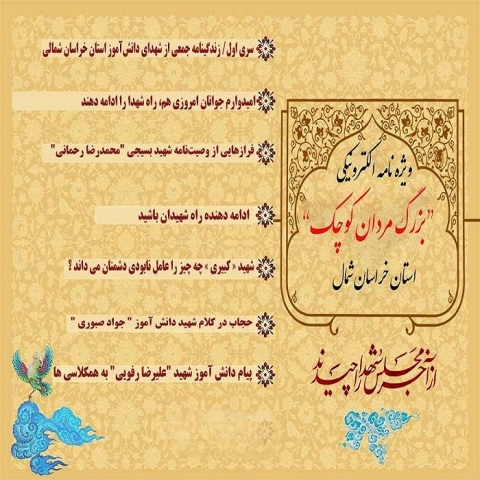 ویژه نامه الکترونیکی
"بزرگ مردان کوچک"
استان خراسان شمال
از آخر مجلس شهدا را چیدند
سری اول/ زندگینامه جمعی از شهدای دانش‌آموز استان خراسان شمالی
امیدوارم جوانان امروزی هم، راه شهدا را ادامه دهند
فرازهایی از وصیت‌نامه شهید بسیجی "محمدرضا رحمانی"
ادامه دهنده راه شهیدان باشید
شهید « کبیری » چه چیز را عامل نابودی دشمنان می داند ؟
حجاب در کلام شهید دانش آموز " جواد صبوری "
پیام دانش آموز شهید "علیرضا رفویی" به همکلاسی ها